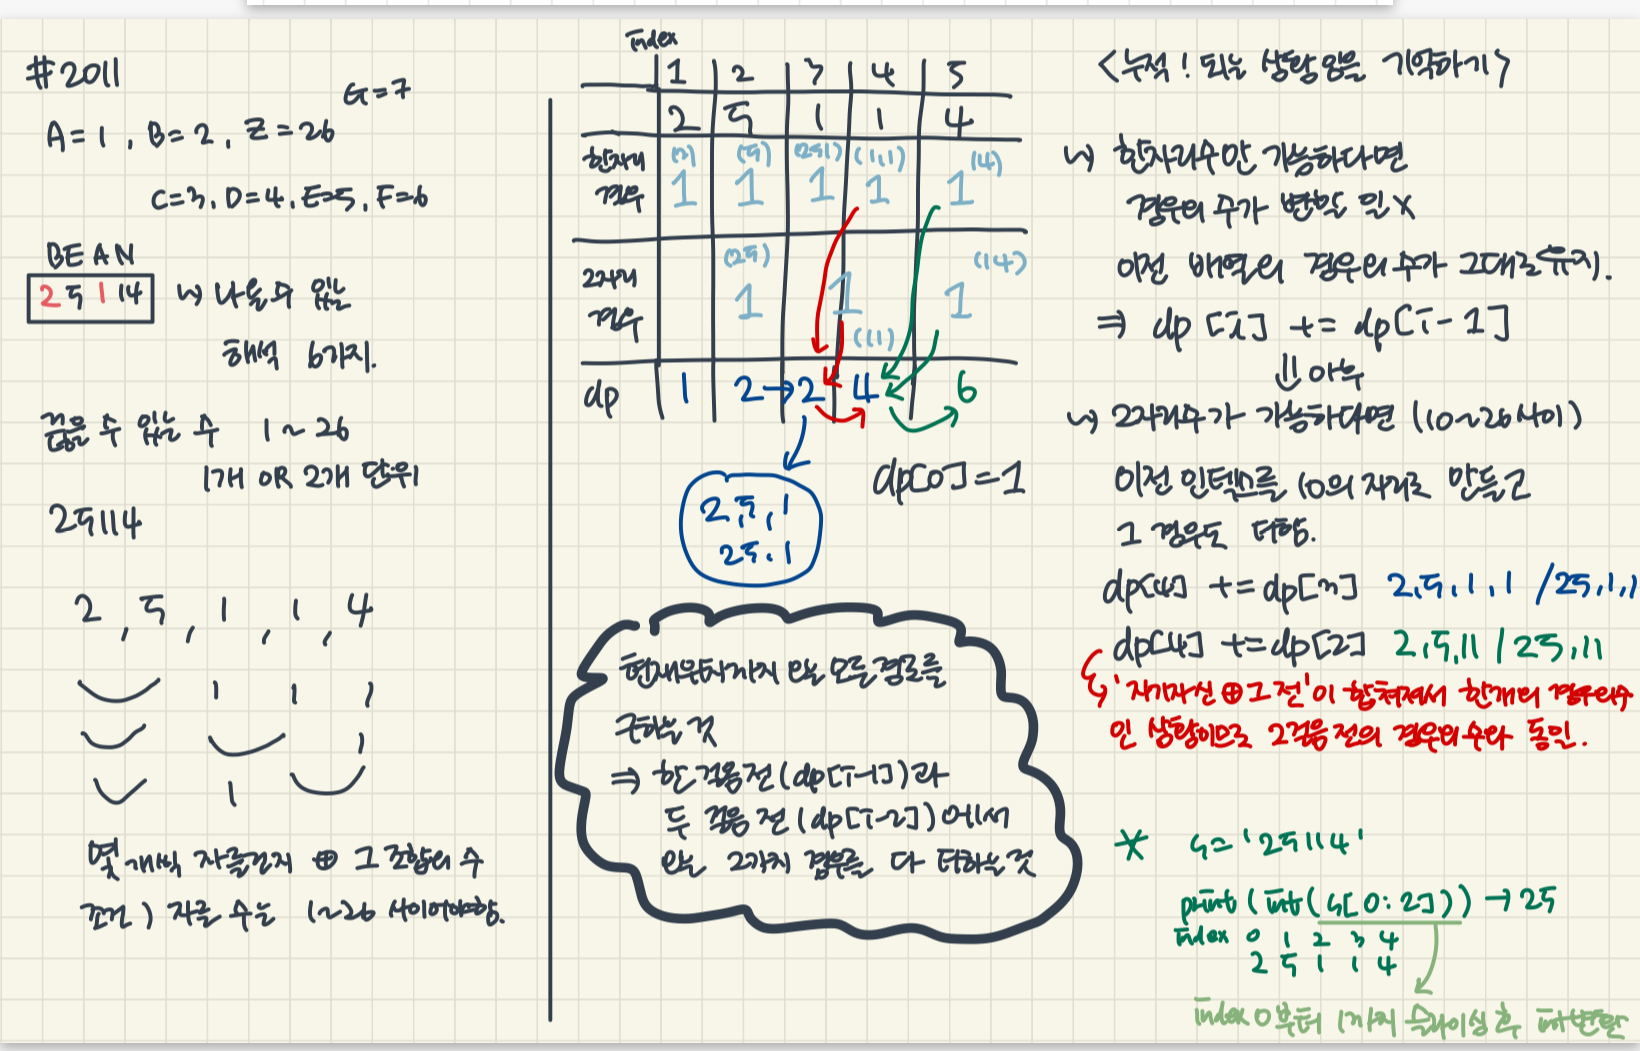 #2011
G=7
A=1, B=2, Z=26
C=3, D=4, E=5, F=6
BEAN
2 5 1 14 ↳ 나올 수 있는
해석 6가지.
끊을 수 있는 수 1~26
1개 OR 2개 단위
25114
2, 5, 1, 1, 4
1 1 1
1
1
몇 개씩 자를건지 ⊕ 그 조합의 수
조건) 자를 수는 1~26 사이어야함.
index
1 2 3 4 5
2 5 1 1 4
한자리 (2) (5) (251) (1,1) (4)
경우 1 1 1 1 1
2자리 (25) (14)
경우 1 1 1
(11)
dp 1 2→2 4 6
dp[0]=1
2,5,1
25,1
현재위치까지 오는 모든경로를
구하는 것
⇒ 한 걸음 전(dp[i-1])과
두 걸음 전(dp[i-2])에서
오는 2가지 경우를 다 더하는 것
<누적! 되는 상황임을 기억하기>
↳ 한자리수만 가능하다면
경우의 수가 변할 일 X
이전 배열의 경우의 수가 그대로 유지.
⇒ dp[i] += dp[i-1]
⇓ 이후
↳ 2자리수가 가능하다면 (10~26사이)
이전 인덱스를 10의 자리로 만들고
그 경우도 더함.
dp[4] += dp[3] 2,5,1,1 / 25,1,1
dp[4] += dp[2] 2,5,11 / 25,11
↳ '자기자신 ⊕ 그 전'이 합쳐져서 한개의 경우의수
인 상황이므로 2걸음 전의 경우의 수와 동일.
* s='25114'
print(int(s[0:2])) → 25
index 0 1 2 3 4
2 5 1 1 4
index 0부터 1까지 슬라이싱 후